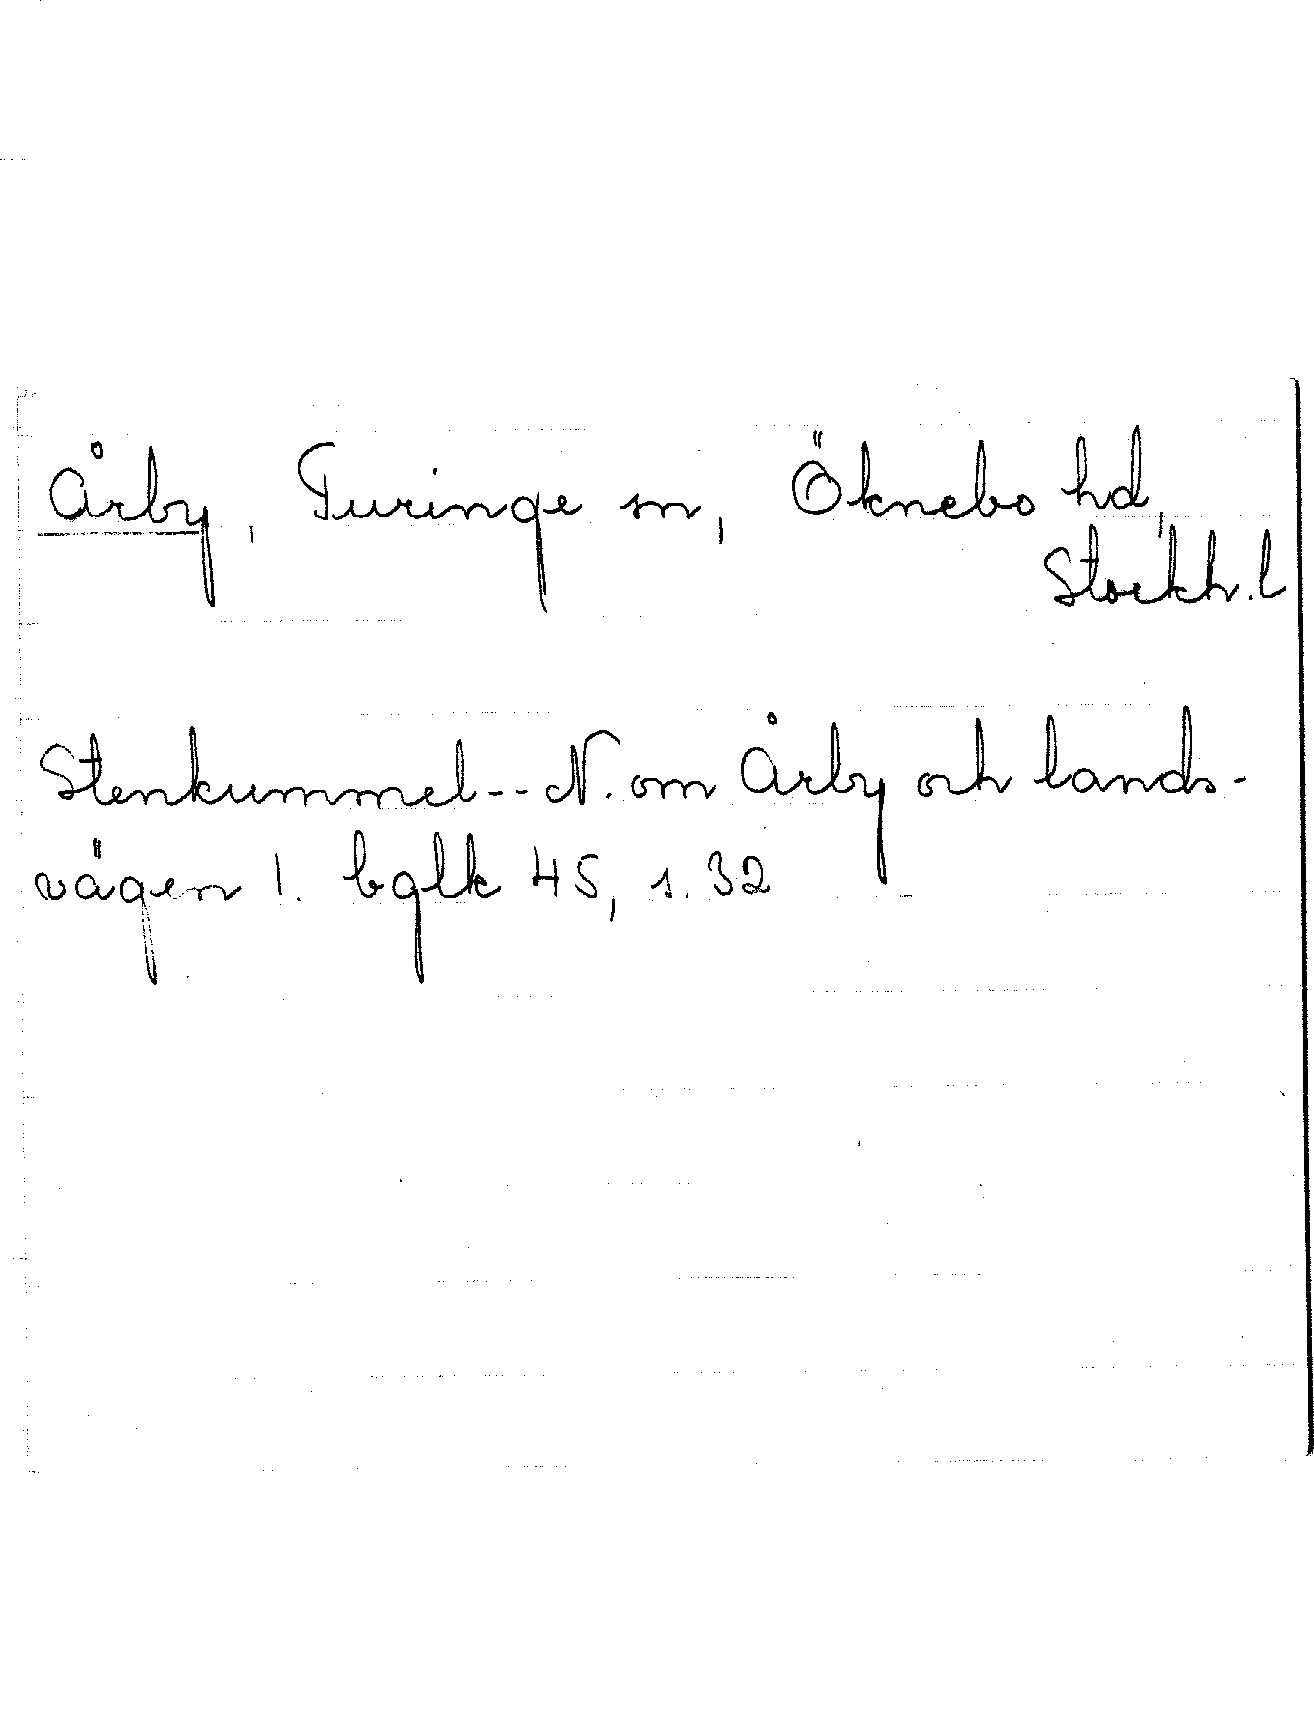 Årby, Turinge sn, Öknebo hd,
Stockh. l
Stenkummel -- N. om Årby och lands-
vägen !. bglk 45, s. 32